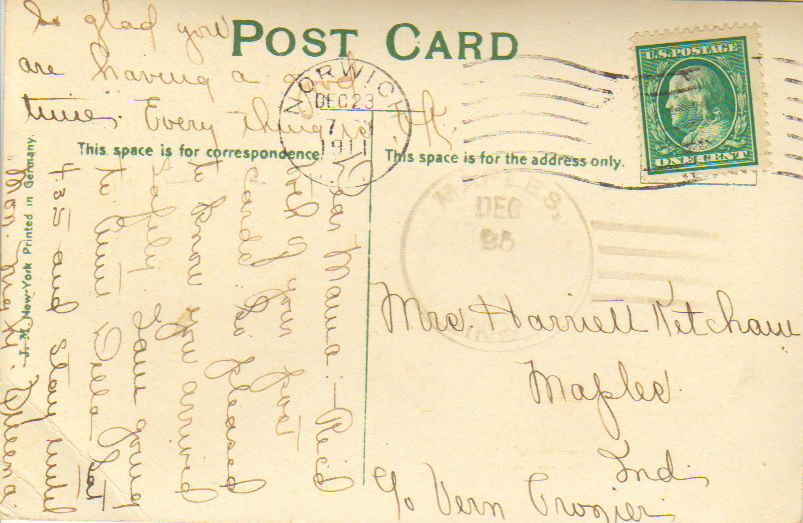 POST CARD
U.S. POSTAGE
ONE CENT
NORWICH
DEC 23
7
1911
MAPLES,
DEC
25
IND.
This space is for correspondence
This space is for the address only.
J. M. New-York Printed in Germany.
Mrs. Harriett Ketcham
Maples
Ind.
c/o Vern Crozier
Dear Mama:- Rec'd
both of your pos
cards. So pleased
to know you arrived
safely. Jane going
to Aunt Della Sat
4:35 and stay until
Mon. night. Queena.
So glad you
are having a good
time. Every thing is O.K.